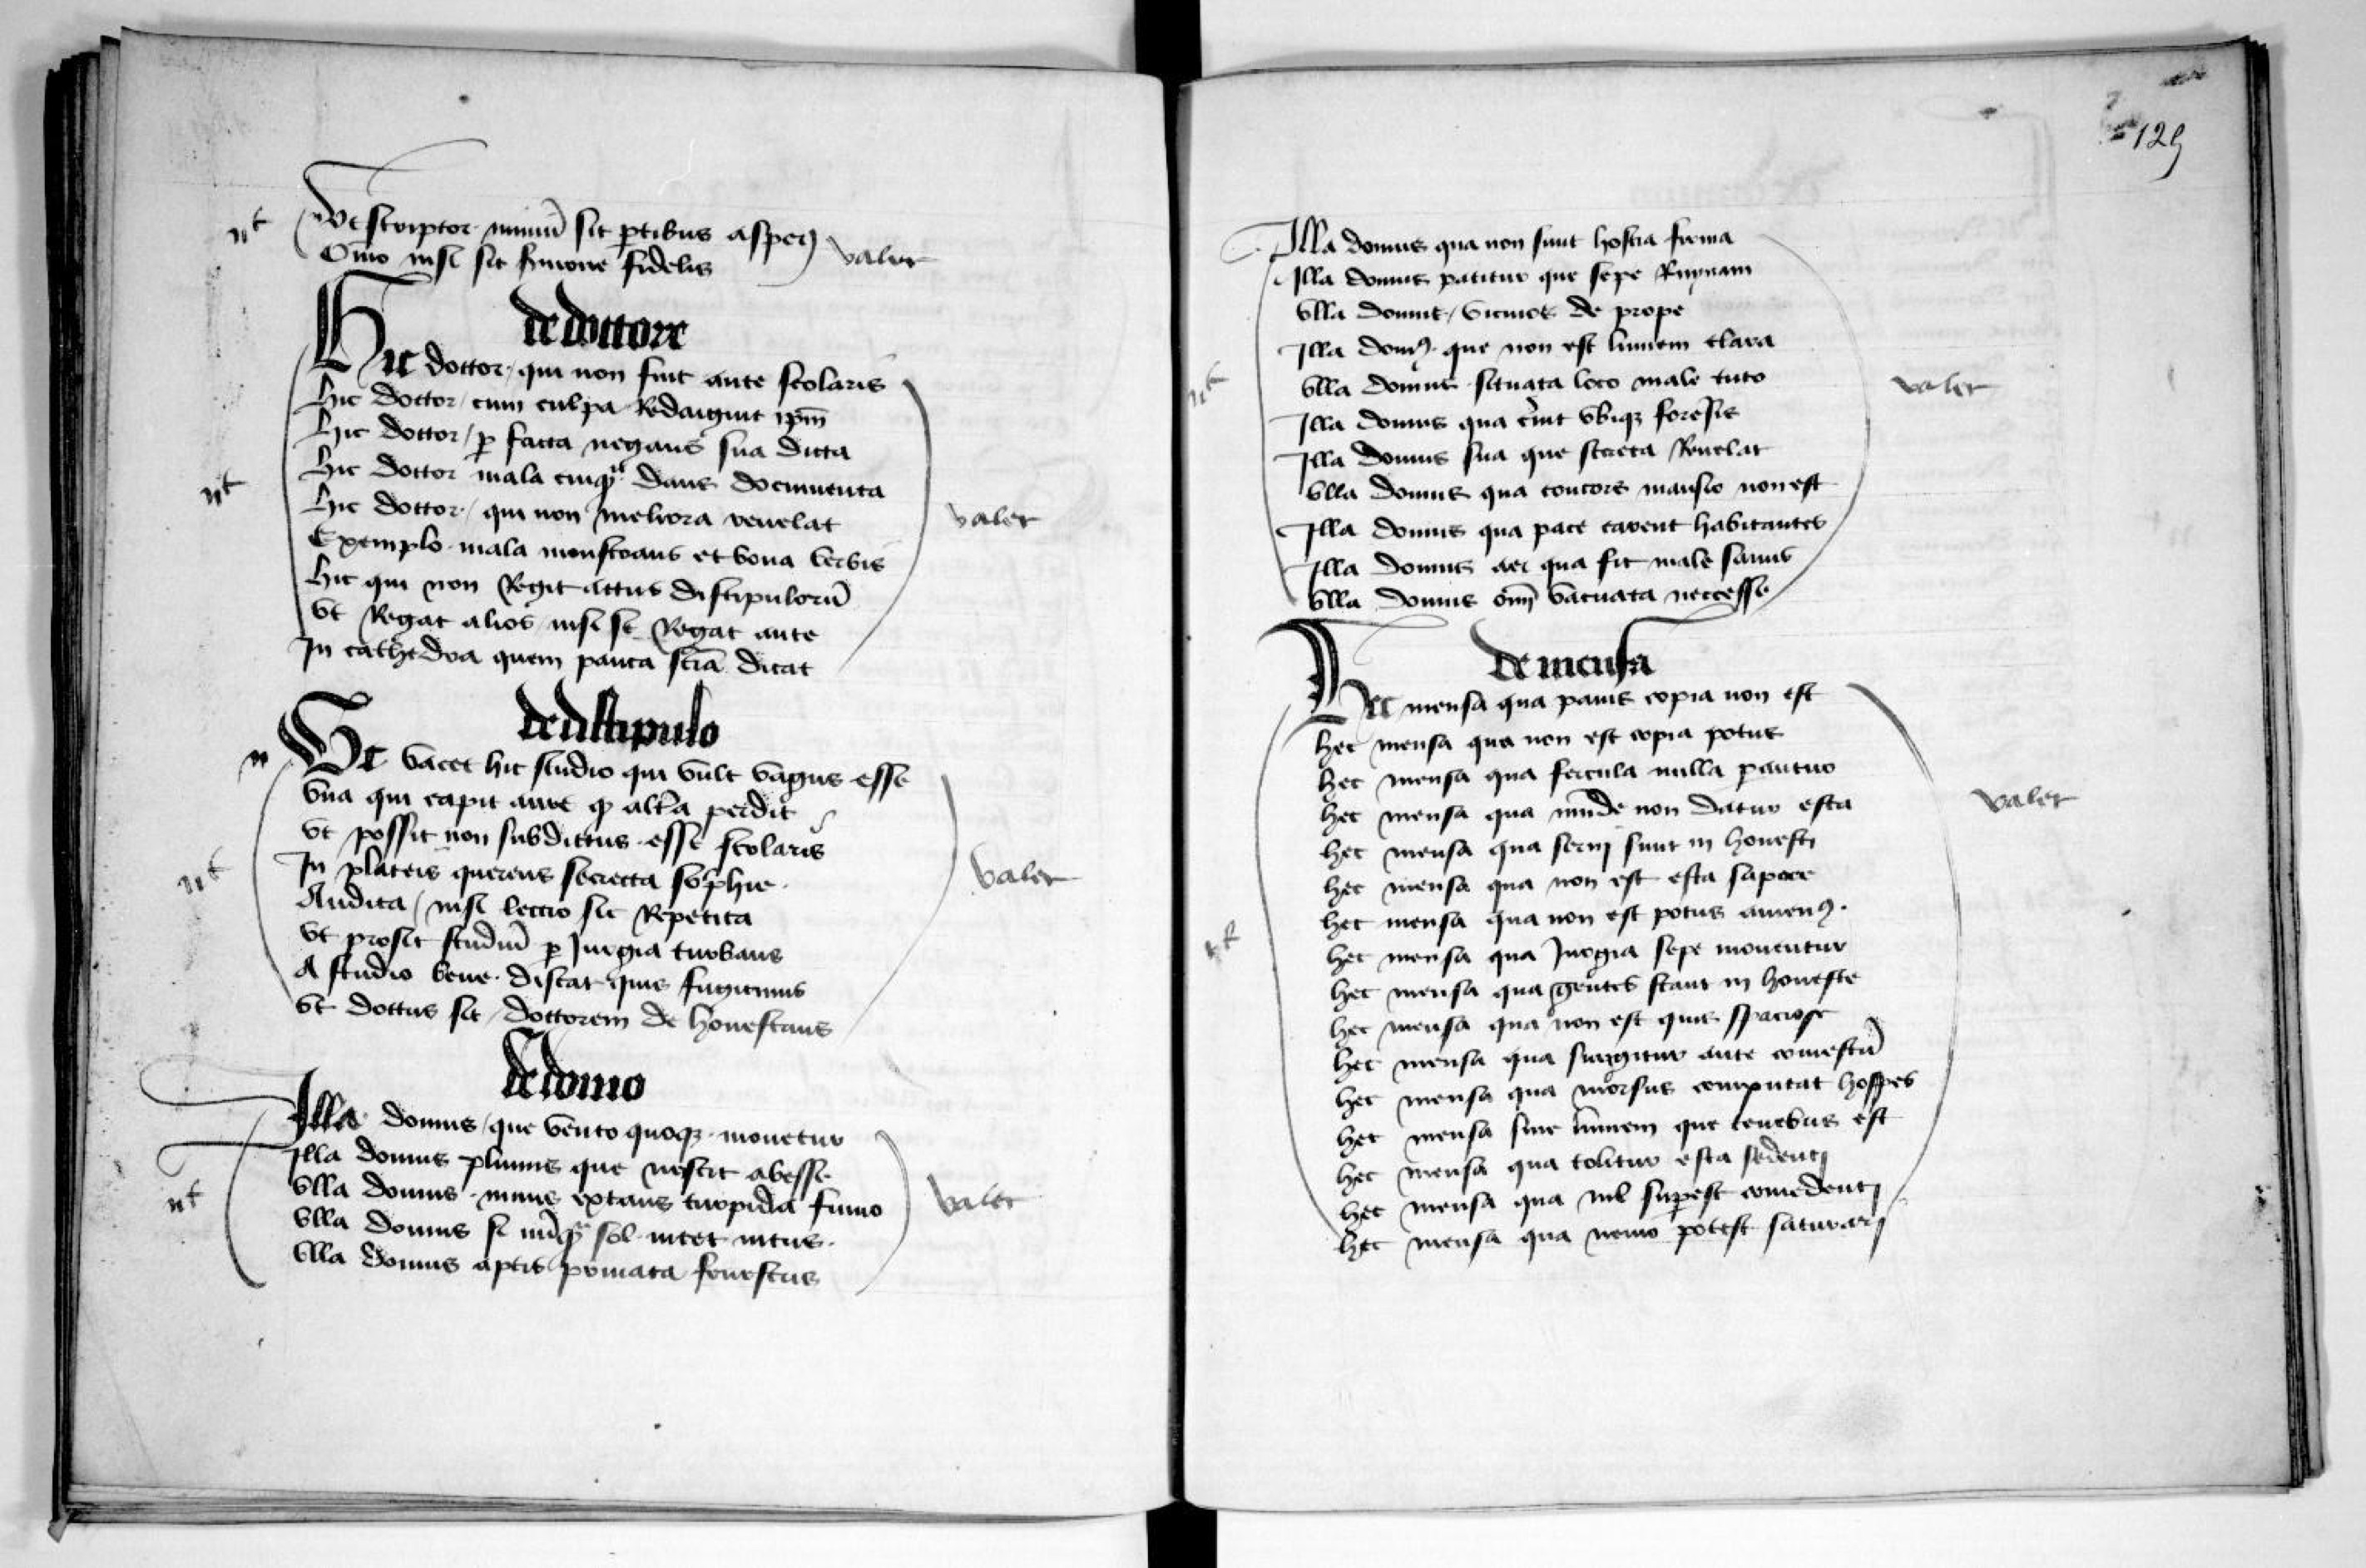 Ut scriptor nimiu sit ptibus asper
Omo nisi sit sermone fidelis
nt valet
de dottore
Hic dottor qui non fuit ante scolaris
hic dottor cum culpa Redarguit ipm
hic dottor p facta negans sua dicta
hic dottor mala cuiqz dans documenta
hic dottor qui non meliora revelat
Exemplo mala monstrans et bona verbis
hic qui non Regit attus discipuloru
vt Regat alios nisi se Regat ante
In cathedra quem pauca scia ditat
nt valet
de discipulo
Vt vacet hic studio qui vult vagus esse
vna qui capit aure qz altera perdit
vt possit non subdittus esse scolaris
In plateis querens secretta sophie
Audita nisi lectio sit Repetita
vt prosit studiu p Jurgia turbans
A studio bene discat quis fugitiuus
vt dottus sit dottorem de honestans
nt valet
de domo
Illa domus que vento quoqz mouetur
Illa domus pluuiis que nescit abesse
vlla domus nimis extans turpida fumo
vlla domus si nuqz sol intet intus
vlla domus aptis priuata fenestris
nt valet
129
Illa domus qua non sunt hostia firma
Illa domus patitur que sepe Ruynam
vlla domus vicinos de prope
Illa domus que non est lumem clara
vlla domus situata loco male tuto
Illa domus qua erint vbiqz foresis
Illa domus sua que secreta Reuelat
vlla domus qua concors mansio non est
Illa domus qua pace carent habitantes
Illa domus aer qua fit male sanus
vlla domus omi vacuata neccesse
nt valet
de mensa
Hec mensa qua panis copia non est
hec mensa qua non est copia potus
hec mensa qua fercula nulla parantur
hec mensa qua munde non datur esca
hec mensa qua seruj sunt in honesti
hec mensa qua non est esca sapore
hec mensa qua non est potus amenus
hec mensa qua Jurgia sepe mouentur
hec mensa qua gentes stant in honeste
hec mensa qua non est quis spaciose
hec mensa qua surgitur ante comestu
hec mensa qua morsus computat hospes
hec mensa sine lumem que tenebris est
hec mensa qua tolitur esca sedentj
hec mensa qua nil superest comedentj
hec mensa qua nemo potest saturarj
valet